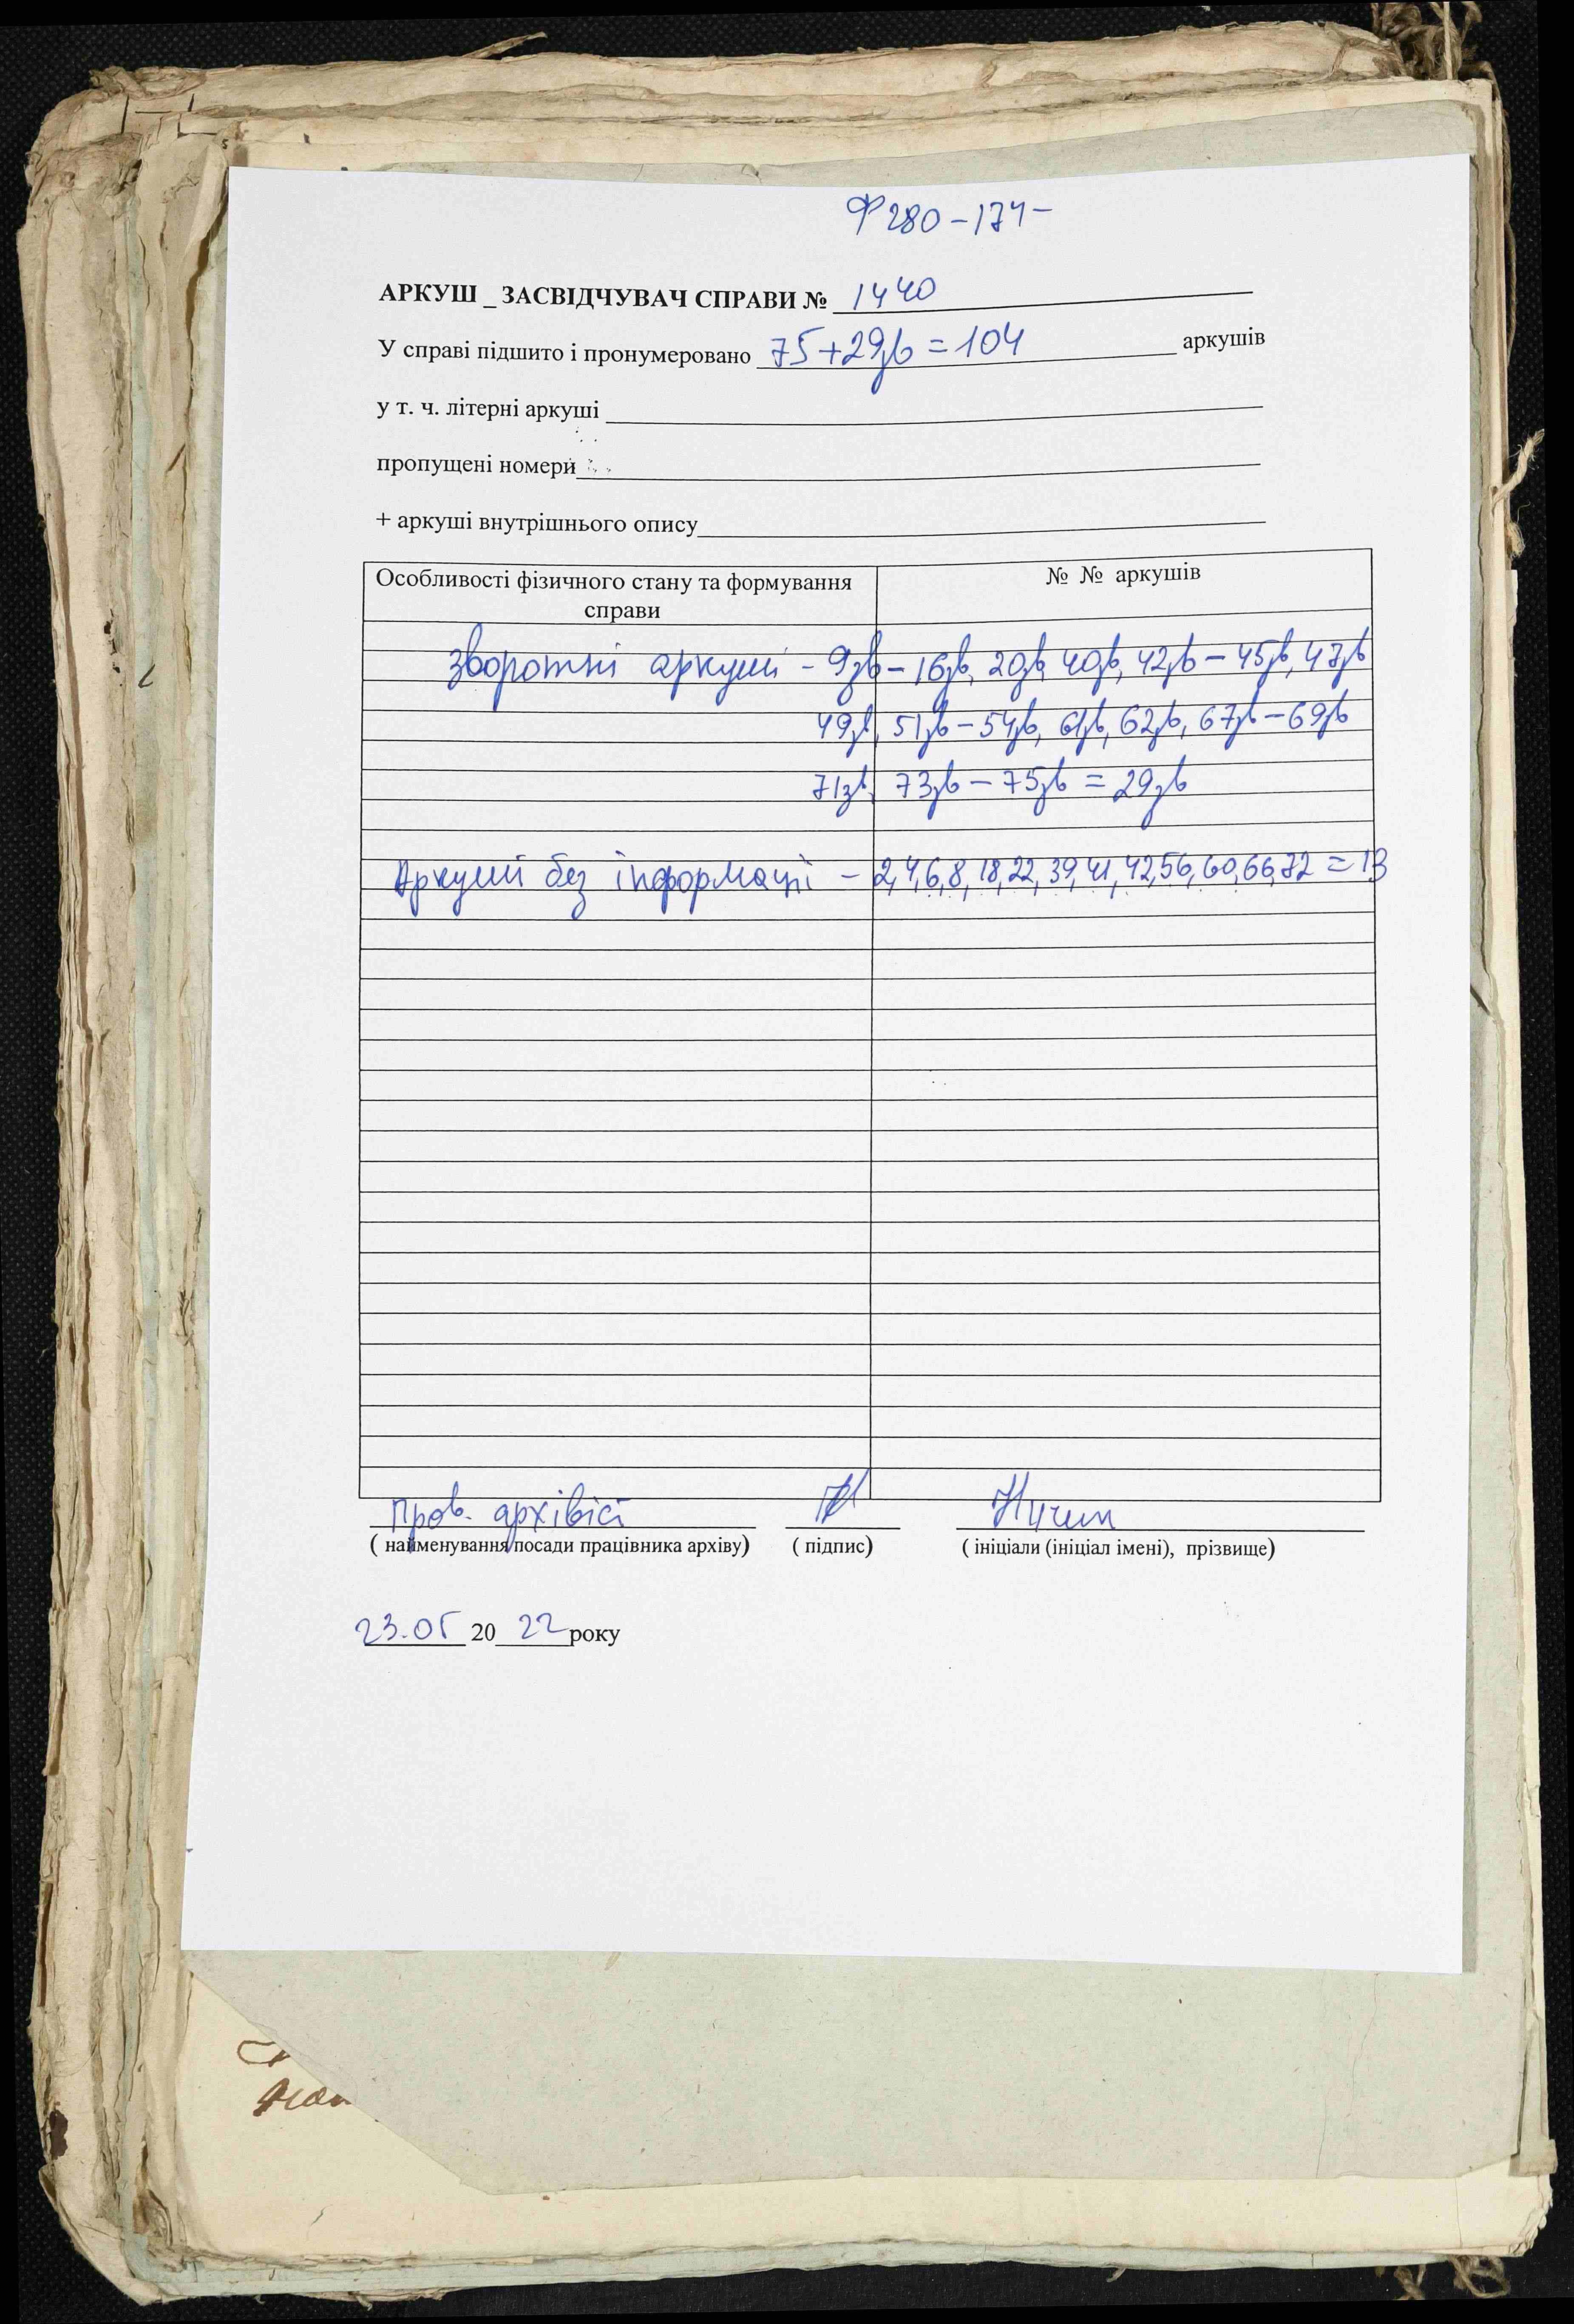 Ф 280-174-
АРКУШ _ ЗАСВІДЧУВАЧ СПРАВИ № 1440
У справі підшито і пронумеровано 75+29зв=104 аркушів
у т. ч. літерні аркуші
пропущені номери
+ аркуші внутрішнього опису
Особливості фізичного стану та формування справи № № аркушів
зворотні аркуші - 9зв - 16зв, 20зв, 40зв, 42зв - 45зв, 47зв
49зв, 51зв - 54зв, 61зв, 62зв, 67зв - 69зв
71зв, 73зв - 75зв = 29зв
Аркуші без інформації - 2,4,6,8,18,22,39,41,42,56,60,66,72 = 13
Пров. архівіст
( найменування посади працівника архіву) ( підпис) ( ініціали (ініціал імені), прізвище)
23.05 20 22 року